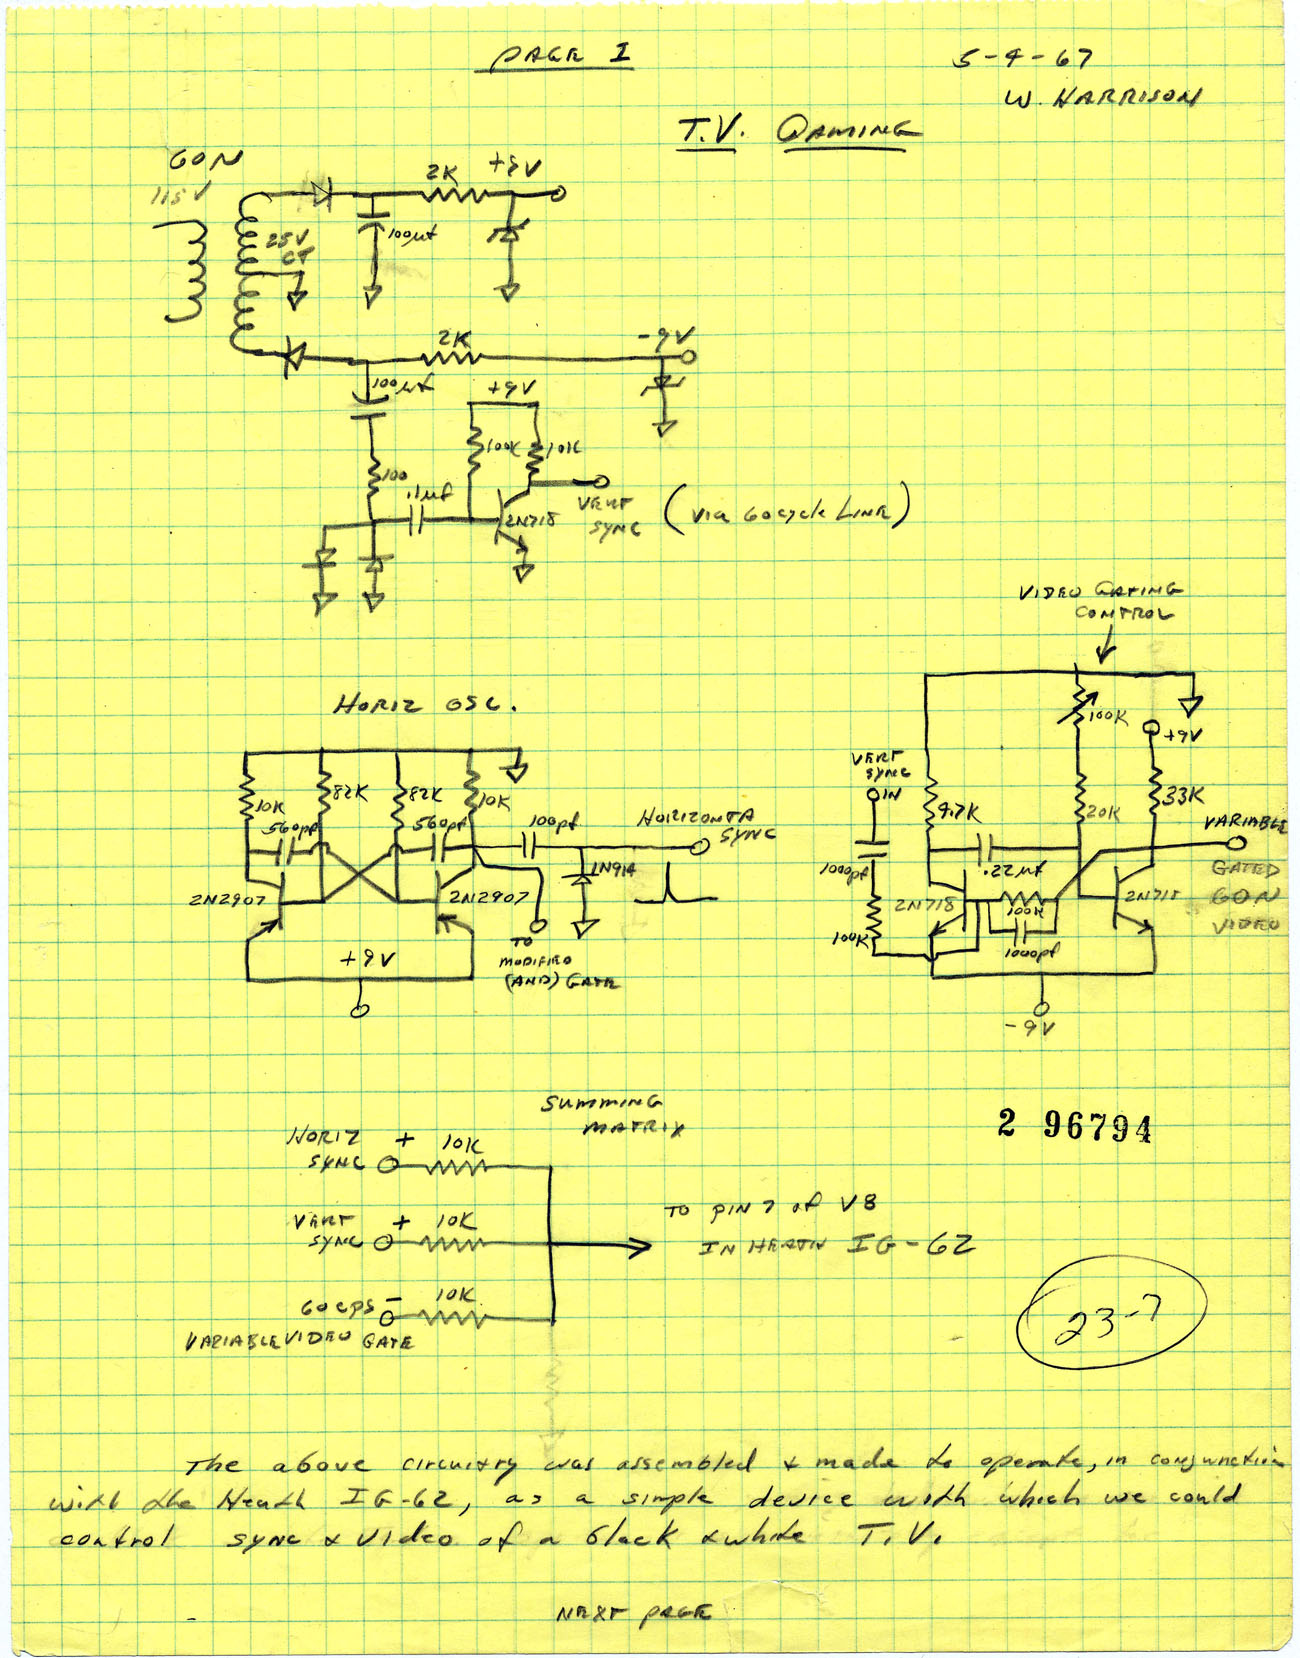 PAGE I
5-4-67
W. HARRISON
T.V. GAMING
60N
115V
25V
CT
2K
+9V
100µf
2K
-9V
100µf
+9V
100K
10K
100
.1µf
2N718
VERT
SYNC
(via 60cycle LINE)
VIDEO GATING
CONTROL
HORIZ OSC.
10K
82K
82K
10K
560pf
560pf
100pf
HORIZONTA
SYNC
1N914
2N2907
2N2907
+9V
TO
MODIFIED
(AND) GATE
100K
+9V
VERT
SYNC
IN
4.7K
20K
33K
VARIABLE
GATED
60N
VIDEO
1000pf
.22µf
2N718
100K
2N718
100K
1000pf
-9V
SUMMING
MATRIX
HORIZ + 10K
SYNC
VERT + 10K
SYNC
60cps - 10K
VARIABLE VIDEO GATE
TO PIN 7 of V8
IN HEATH IG-62
2 96794
23-7
The above circuitry was assembled & made to operate, in conjunction
with the Heath IG-62, as a simple device with which we could
control sync & video of a black & white T.V.
NEXT PAGE